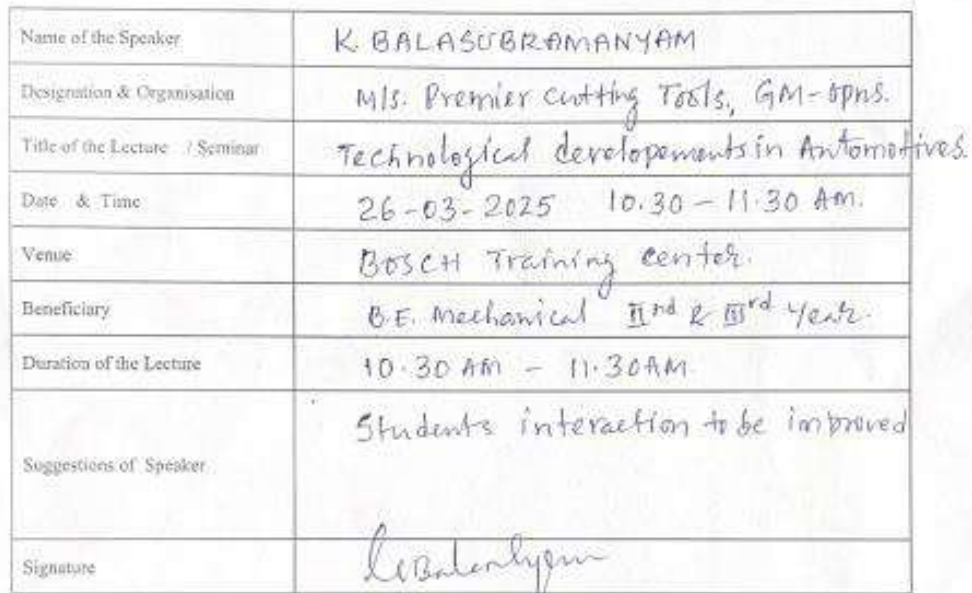 Name of the Speaker K. BALASUBRAMANYAM
Designation & Organisation M/s. Premier Cutting Tools, GM-opns.
Title of the Lecture / Seminar Technological developements in Automotives.
Date & Time 26-03-2025 10.30 - 11.30 AM.
Venue BOSCH Training Center.
Beneficiary B.E. Mechanical IInd & IIIrd Year.
Duration of the Lecture 10.30 AM - 11.30AM.
Suggestions of Speaker Students interaction to be improved
Signature